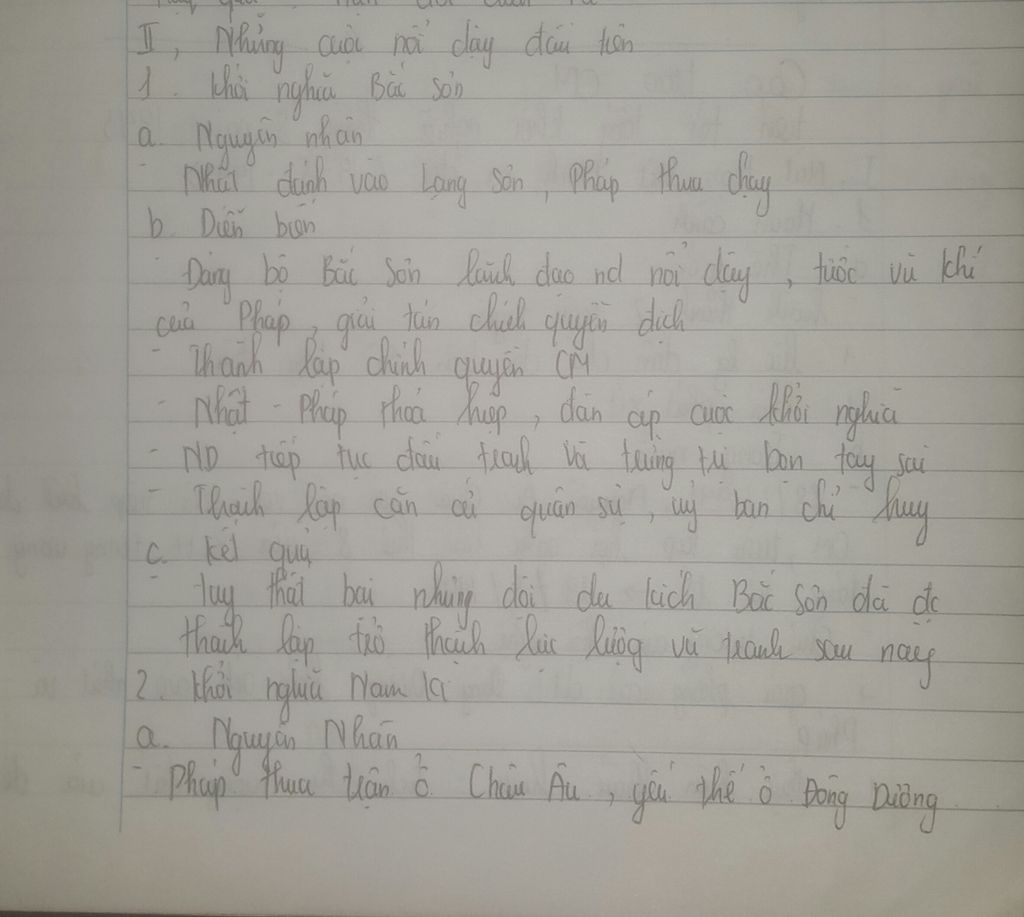 II, Những cuộc nổi dậy đầu tiên
1. Khởi nghĩa Bắc Sơn
a. Nguyên nhân
- Nhật đánh vào Lạng Sơn, Pháp thua chạy
b. Diễn biến
- Đảng bộ Bắc Sơn lãnh đạo nd nổi dậy, tước vũ khí
của Pháp, giải tán chính quyền địch
- Thành lập chính quyền CM
- Nhật - Pháp thoả hiệp, đàn áp cuộc khởi nghĩa
- ND tiếp tục đấu tranh và trừng trị bọn tay sai
- Thành lập căn cứ quân sự, uỷ ban chỉ huy
c. Kết quả
- Tuy thất bại nhưng đội du kích Bắc Sơn đã đc
thành lập trở thành lực lượg vũ tranh sau này
2. Khởi nghĩa Nam Kì
a. Nguyên Nhân
- Pháp thua trận ở Châu Âu, yếu thế ở Đông Dương